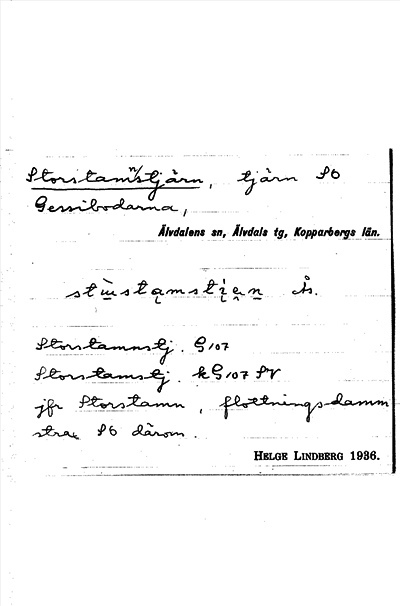 Storstamⁿ/stjärn, tjärn SO
Gessibodarna,
Älvdalens sn, Älvdals tg, Kopparbergs län.
Ås.
Storstamnstj. G107
Storstamstj. kG107 SV
jfr Storstamn, flottningsdamm
strax SO därom.
HELGE LINDBERG 1936.